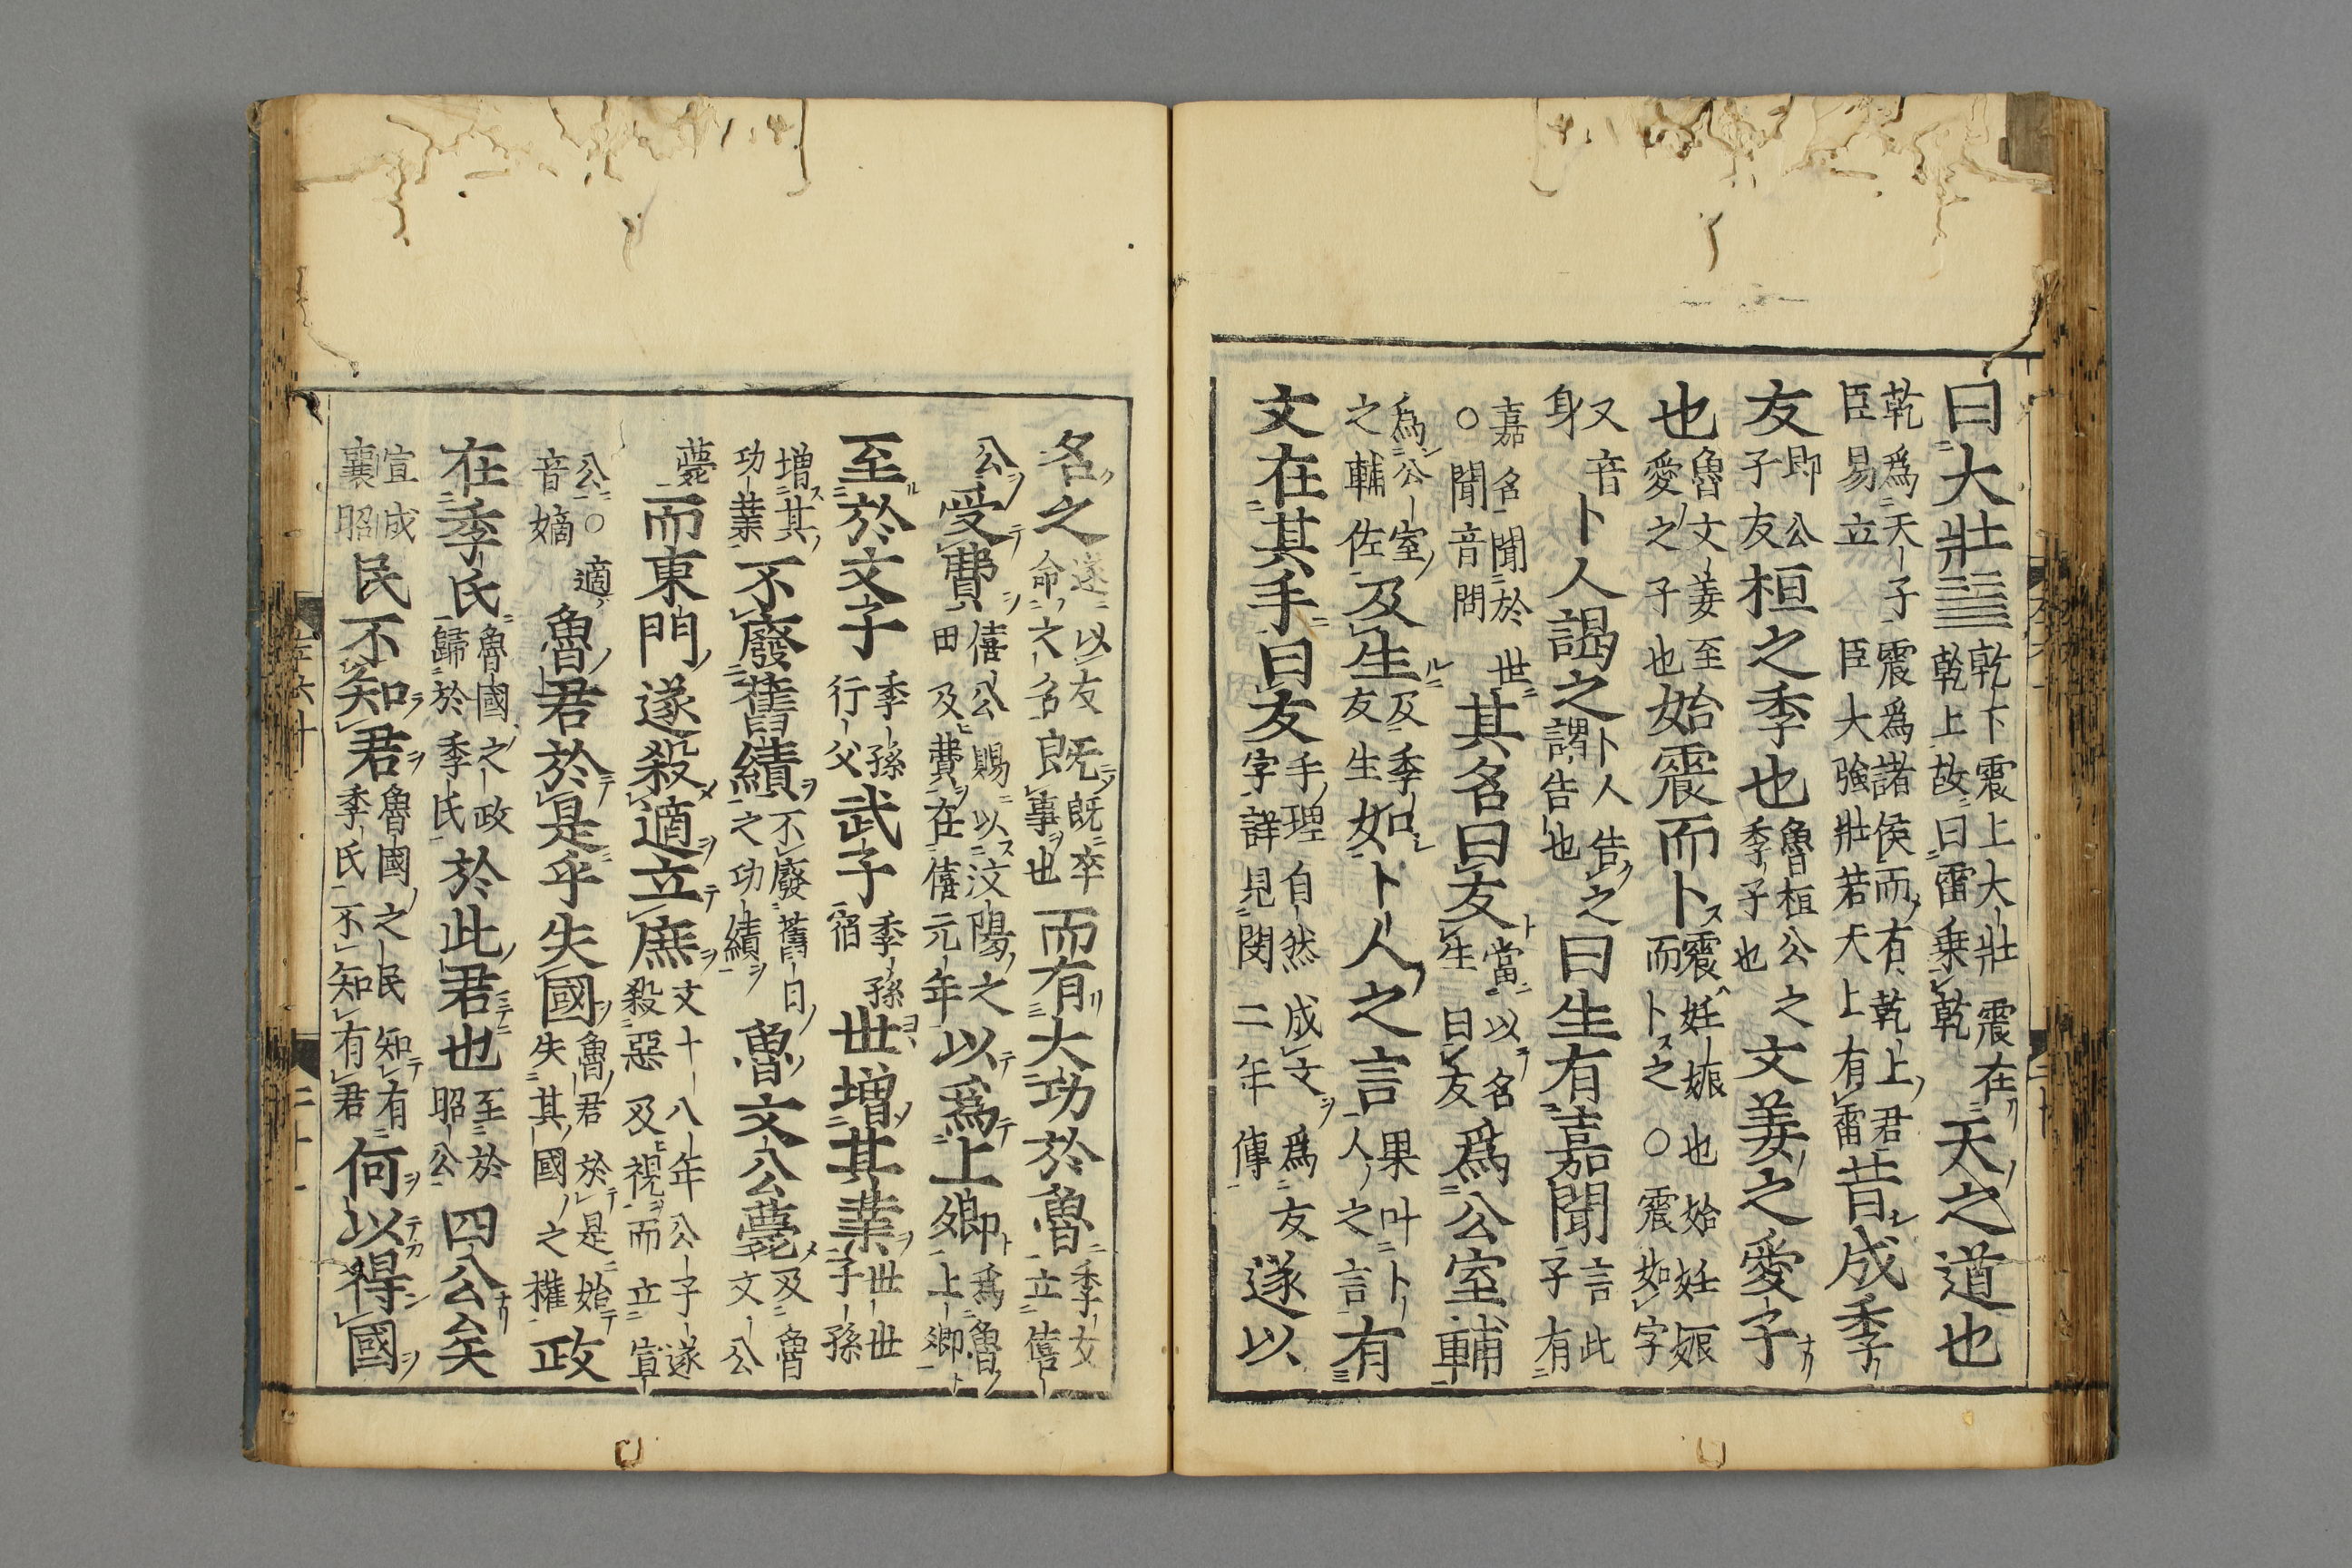 曰大壯䷡乾下震上大壯震在乾上故曰雷乗乾天之道也
乾爲天子震爲諸侯而有乾上君臣易立臣大強壯若天上有雷昔成季
友即公子友桓之季也魯桓公之季子也文姜之愛子
也魯文姜至愛之子也始震而卜震妊娠也始妊娠而卜之○震如字
又音身卜人謁之卜人告之謂告也曰生有嘉聞言此子有
嘉名聞於世○聞音問其名曰友當以名生曰友爲公室輔
爲公室之輔佐及生及季友生如卜人之言果叶卜人之言有
文在其手曰友手理自然成文爲友字詳見閔二年傳遂以
名之遂以友命之名既既卒事也而有大功於魯季友立僖
公受費僖公賜以汶陽之田及費在僖元年以爲上卿爲魯上卿
至於文子季孫行父武子季孫宿世增其業世世子孫
增其功業不廢舊績不廢舊日之功績魯文公薨及魯文公
薨而東門遂殺適立庶文十八年公子遂殺惡及視而立宣
公○適音嫡魯君於是乎失國魯君於是始失其國之權政
在季氏魯國之政歸於季氏於此君也至於昭公四公矣
宣成襄昭民不知君魯國之民知有季氏不知有君何以得國